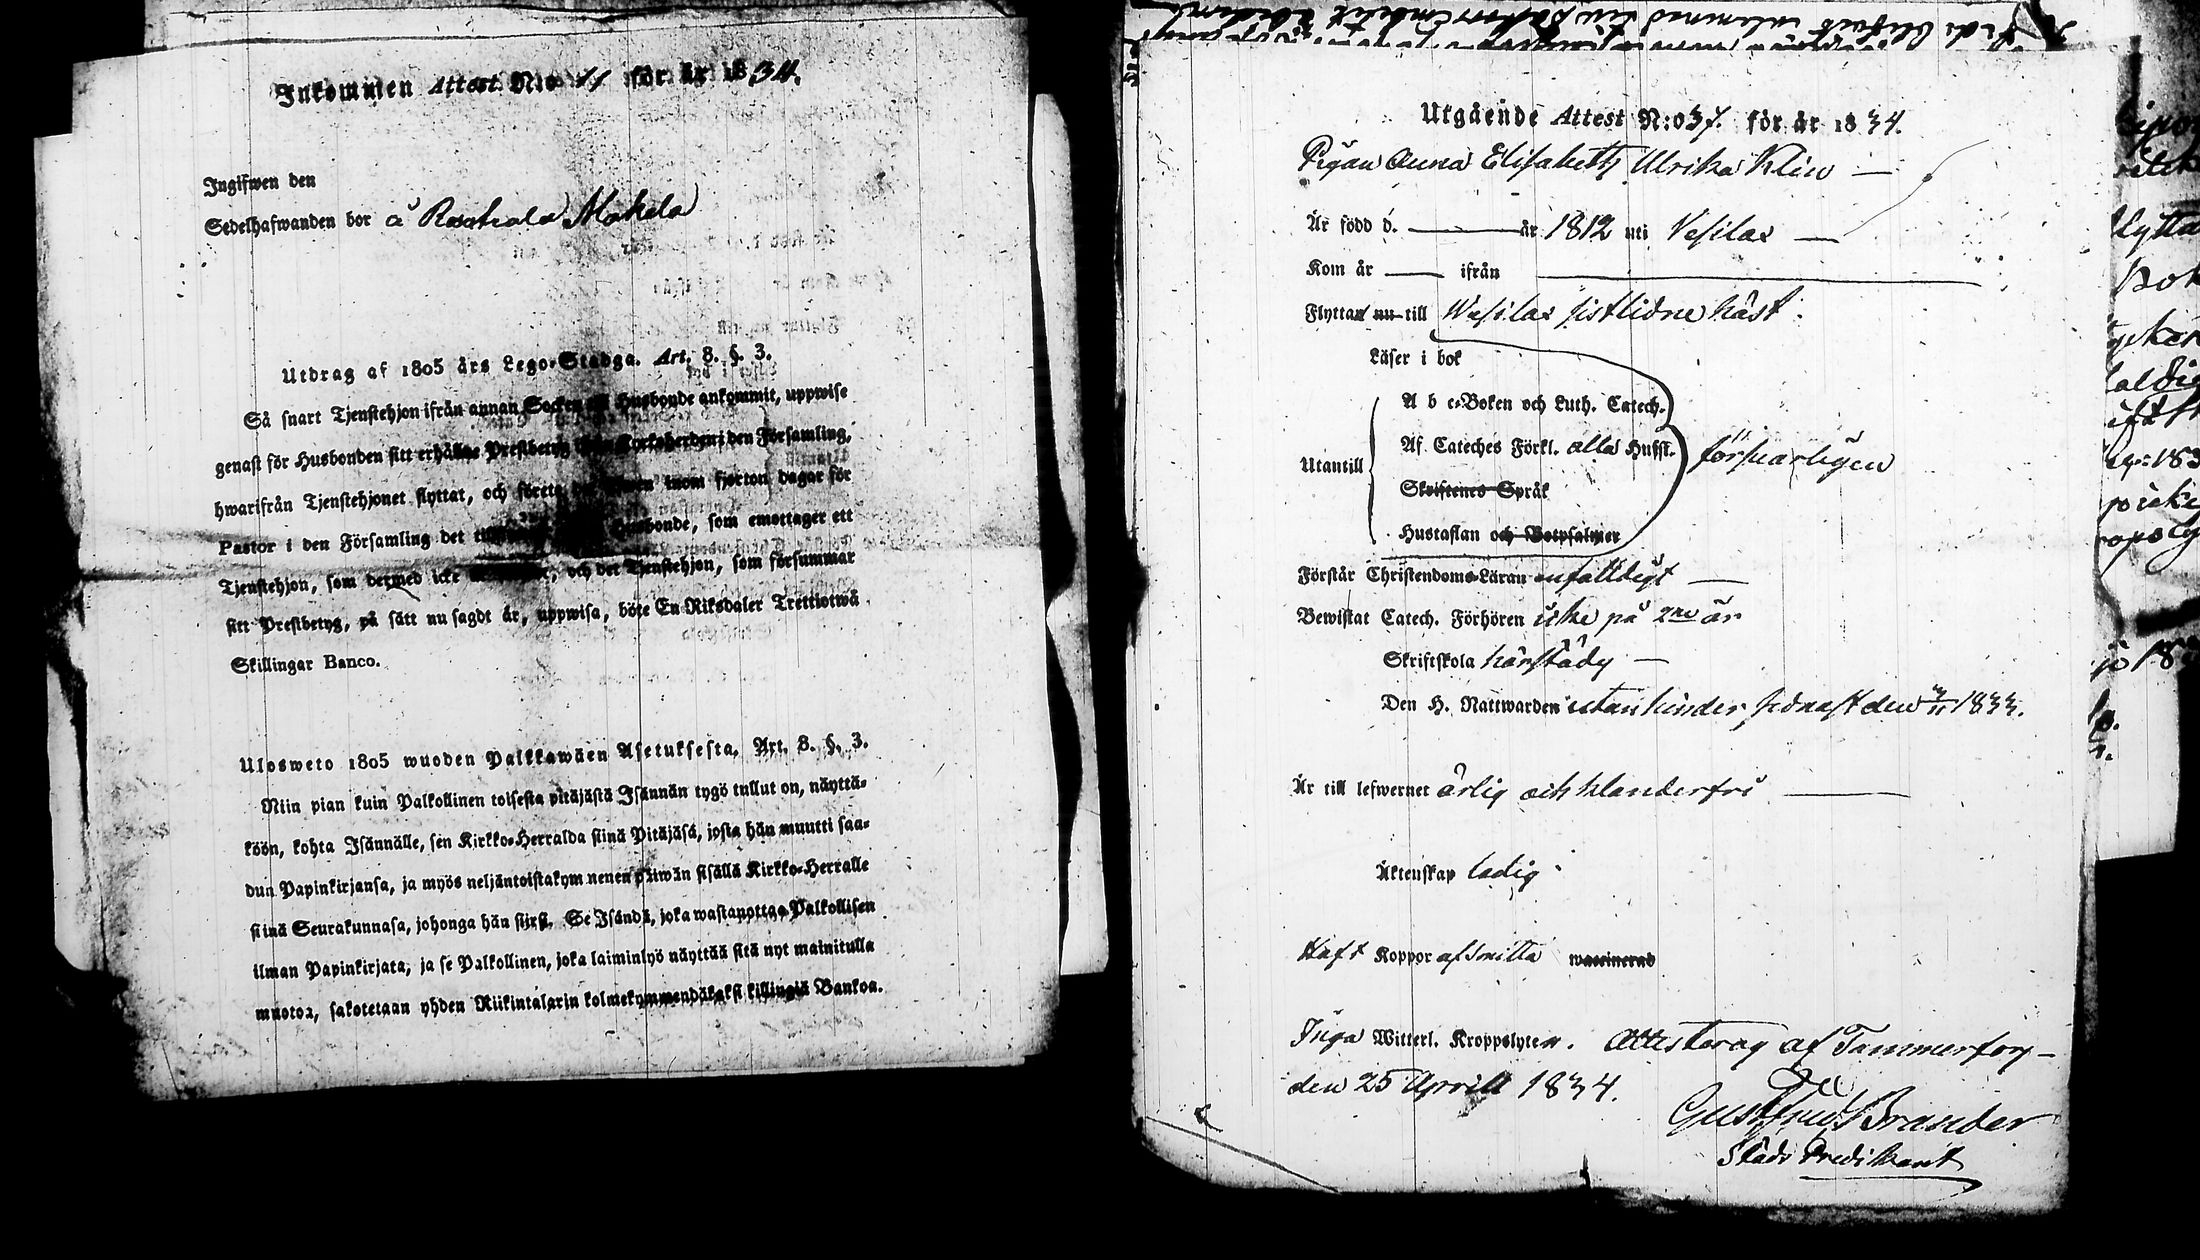 Inkommen Attest N:o 11 för år 1834.
Ingifwen den
Sedelhafwanden bor å Makela
Utdrag af 1805 års Lego-Stadga. Art. 8. §. 3.
Så snart Tjenstehjon ifrån annan Socken til Husbonde ankommit, uppwise
genast för Husbonden sitt erhållne Prestbetyg ifrån Kyrkoherden i den Församling,
hwarifrån Tjenstehjonet flyttat, och förete inom fjorton dagar för
Pastor i den Församling det Husbonde, som emottager ett
Tjenstehjon, som dermed icke och det Tjenstehjon, som försummar
sitt Prestbetyg, på sätt nu sagdt är, uppwisa, böte En Riksdaler Trettiotwå
Skillingar Banco.
Ulosweto 1805 wuoden Palkkawäen Asetuksesta. Art. 8. §. 3.
Niin pian kuin Palkollinen toisesta pitäjästä Isännän tygö tullut on, näyttä-
köön, kohta Isännälle, sen Kirkko-Herralda siinä Pitäjäsä, josta hän muutti saa-
dun Papinkirjansa, ja myös neljäntoistakymmenen päiwän sisällä Kirkko-Herralle
siinä Seurakunnasa, johonga hän siirsi. Se Isändä, joka wastanottaa Palkollisen
ilman Papinkirjata, ja se Palkollinen, joka laiminlyö näyttää sitä nyt mainitulla
muotoa, sakotetaan yhden Riikintalarin kolmekymmendäkaksi killingiä Bankoa.
Utgående Attest N:o 37. för år 1834.
Pigan Anna Elisabeth Ulrika Klin
Är född d. — år 1812 uti Vesilax —
Kom år — ifrån
Flyttat nu till Wesilax sistlidne höst.
Läser i bok
A b c-Boken och Luth. Catech.
Af Cateches Förkl. alla Hufst.
Utantill
försvarligen
Skriftenes Språk
Hustaflan och Botpsalmer
Förstår Christendoms-Läran enfaldigt —
Bewistat Catech. Förhören icke på 2ne år
Skriftskola härstädes —
Den H. Nattwarden utan hinder, sednast den 3/11 1833.
Är till lefwernet ärlig och klanderfri —
Äktenskap ledig.
Haft Koppor af smitta waccinerad
Inga Witterl. Kroppslyten. Attesteras af Tammerfors
den 25 Aprill 1834.
Gust. Brander
Stads Predikant